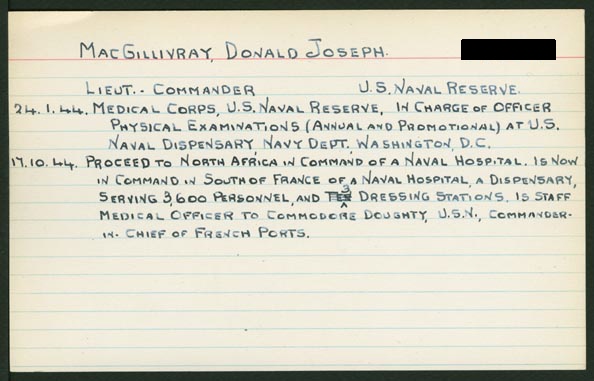 MACGILLIVRAY, DONALD JOSEPH.
LIEUT.- COMMANDER U.S. NAVAL RESERVE.
24.1.44. MEDICAL CORPS, U.S. NAVAL RESERVE, IN CHARGE OF OFFICER
PHYSICAL EXAMINATIONS (ANNUAL AND PROMOTIONAL) AT U.S.
NAVAL DISPENSARY, NAVY DEPT. WASHINGTON, D.C.
17.10.44. PROCEED TO NORTH AFRICA IN COMMAND OF A NAVAL HOSPITAL. IS NOW
IN COMMAND IN SOUTH OF FRANCE OF A NAVAL HOSPITAL, A DISPENSARY,
SERVING 3,600 PERSONNEL, AND 3 DRESSING STATIONS. IS STAFF
MEDICAL OFFICER TO COMMODORE DOUGHTY, U.S.N., COMMANDER-
IN-CHIEF OF FRENCH PORTS.